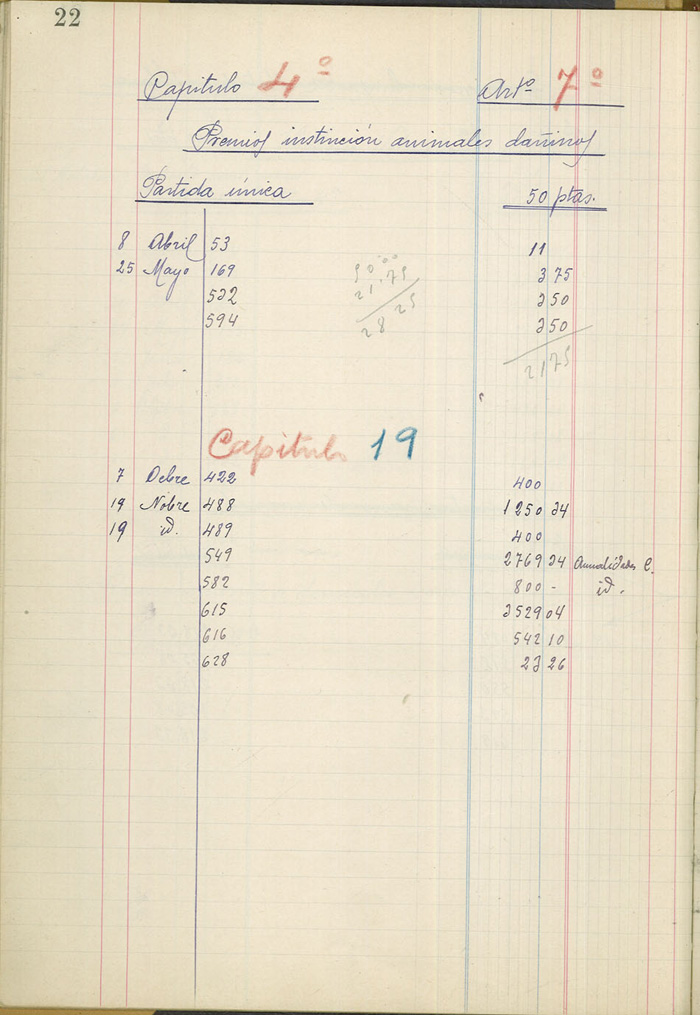 22
Capitulo 4º Artº 7º
Premios instinción animales dañinos
Partida única 50 ptas.
8 Abril 53 11
25 Mayo 169 3 75
532 3 50
594 3 50
50'00
21'75
28 25
21 75
Capitulo 19
7 Dcbre 422 400
19 Nobre 488 1250 34
19 id. 489 400
549 2769 34 Anualidades C.
582 800 - id.
615 3529 04
616 542 10
628 23 26